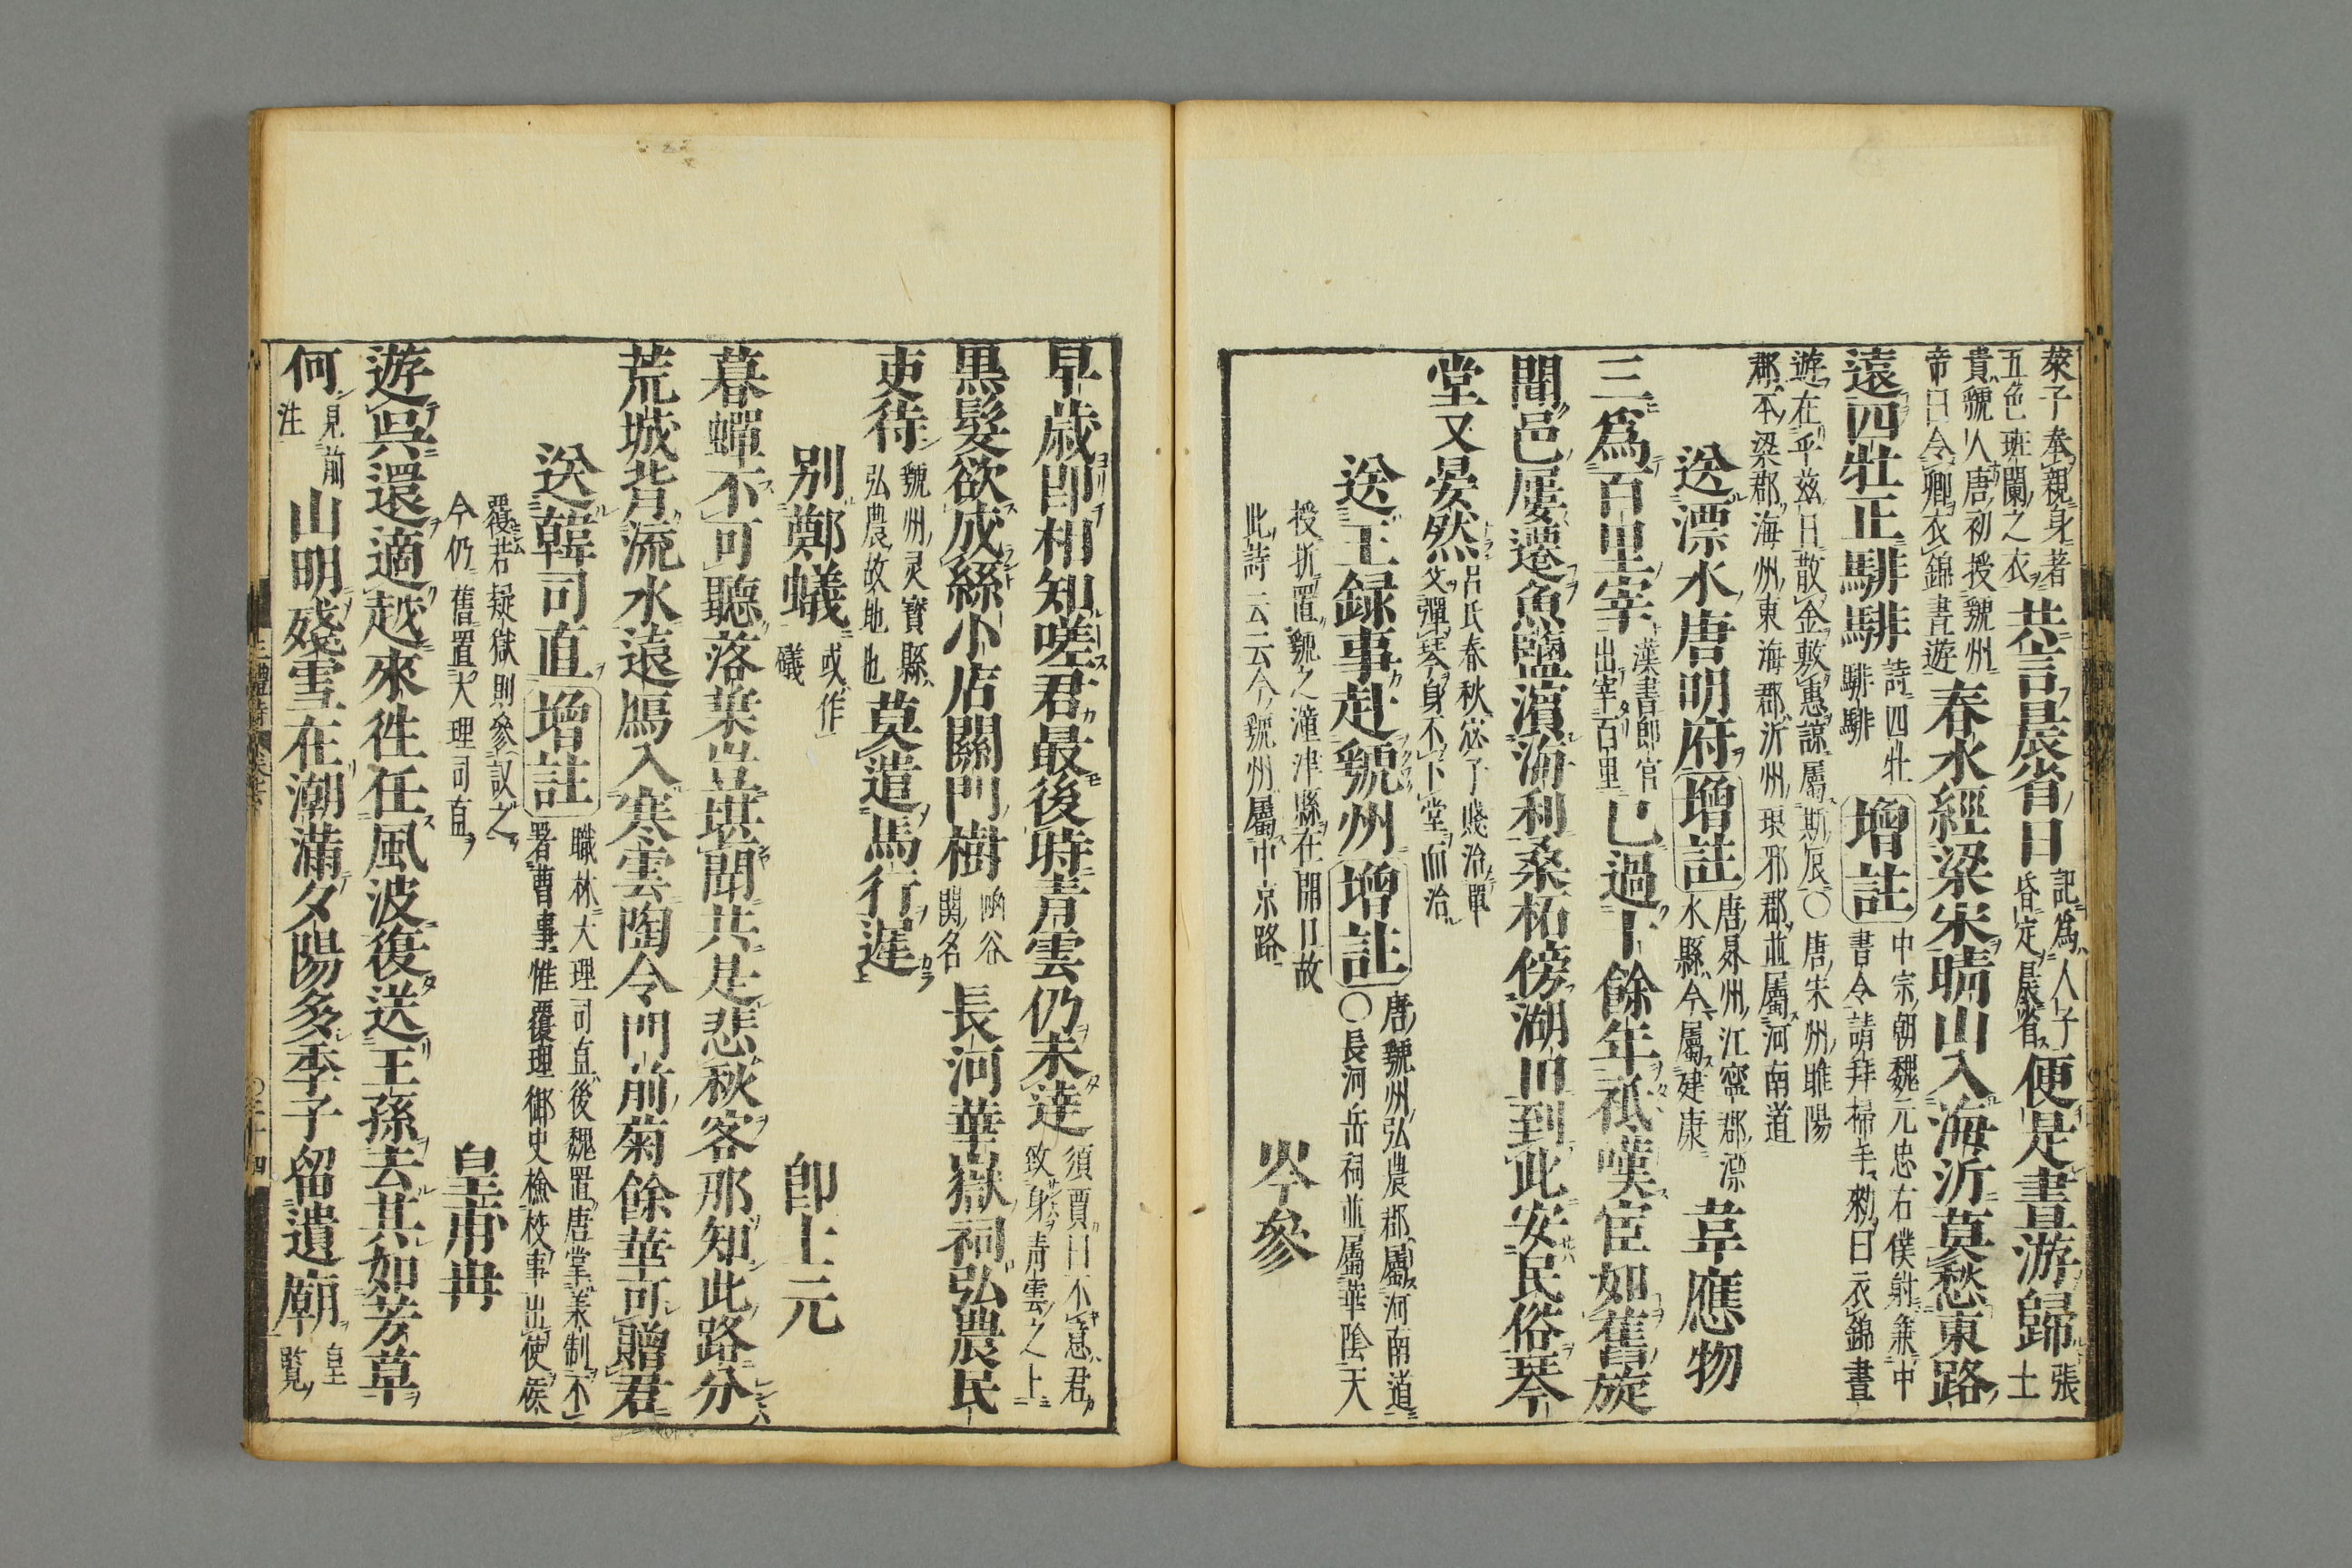 萊子奉親身著
五色班闌之衣
恭言晨省日
記爲人子
昏定晨省
便是晝游歸
張
士
貴虢人唐初授虢州
帝曰令卿衣錦晝遊
春水經梁宋晴山入海沂莫愁東路
遠四牡正騑騑
詩四牡
騑騑
增註
中宗朝魏元忠右僕射兼中
書令請拜掃手勑曰衣錦晝
遊在乎兹日散金敷惠諒屬斯辰〇唐宋州睢陽
郡本梁郡海州東海郡沂州琅邪郡並屬河南道
送溧水唐明府
增註
唐昇州江寧郡溧
水縣今屬建康
韋應物
三爲百里宰
漢書郎官
出宰百里
已過十餘年祗嘆宦如舊旋
聞邑屢遷魚鹽濱海利桑柘傍湖田到此安民俗琴
堂又晏然
呂氏春秋宓子賤治單
父彈琴身不下堂而治
送王録事赴虢州
增註
唐虢州弘農郡屬河南道
〇長河岳祠並屬華陰天
授折置虢之潼津縣在開月故
此詩云云今虢州屬中京路
岑參
早歲即相知嗟君最後時青雲仍未達
須賈曰不意君
致身青雲之上
黒髮欲成絲小店關門樹
凾谷
関名
長河華嶽祠弘農民
吏待
虢州灵寶縣
弘農故地也
莫遣馬行遲
别鄭蟻
或作
礒
郎士元
暮蟬不可聽落葉豈堪聞共是悲秋客那知此路分
荒城背流水遠鴈入寒雲陶令門前菊餘華可贈君
送韓司直
增註
職林大理司直後魏置唐掌美制不
署曹事惟覆理御史檢校事出使候
覆若疑獄則參議之
今仍舊置大理司直
皇甫冉
遊呉還適越來徃任風波復送王孫去其如芳草
何
見前
注
山明殘雪在潮滿夕陽多季子留遺廟
皇
覧
三體詩
卷